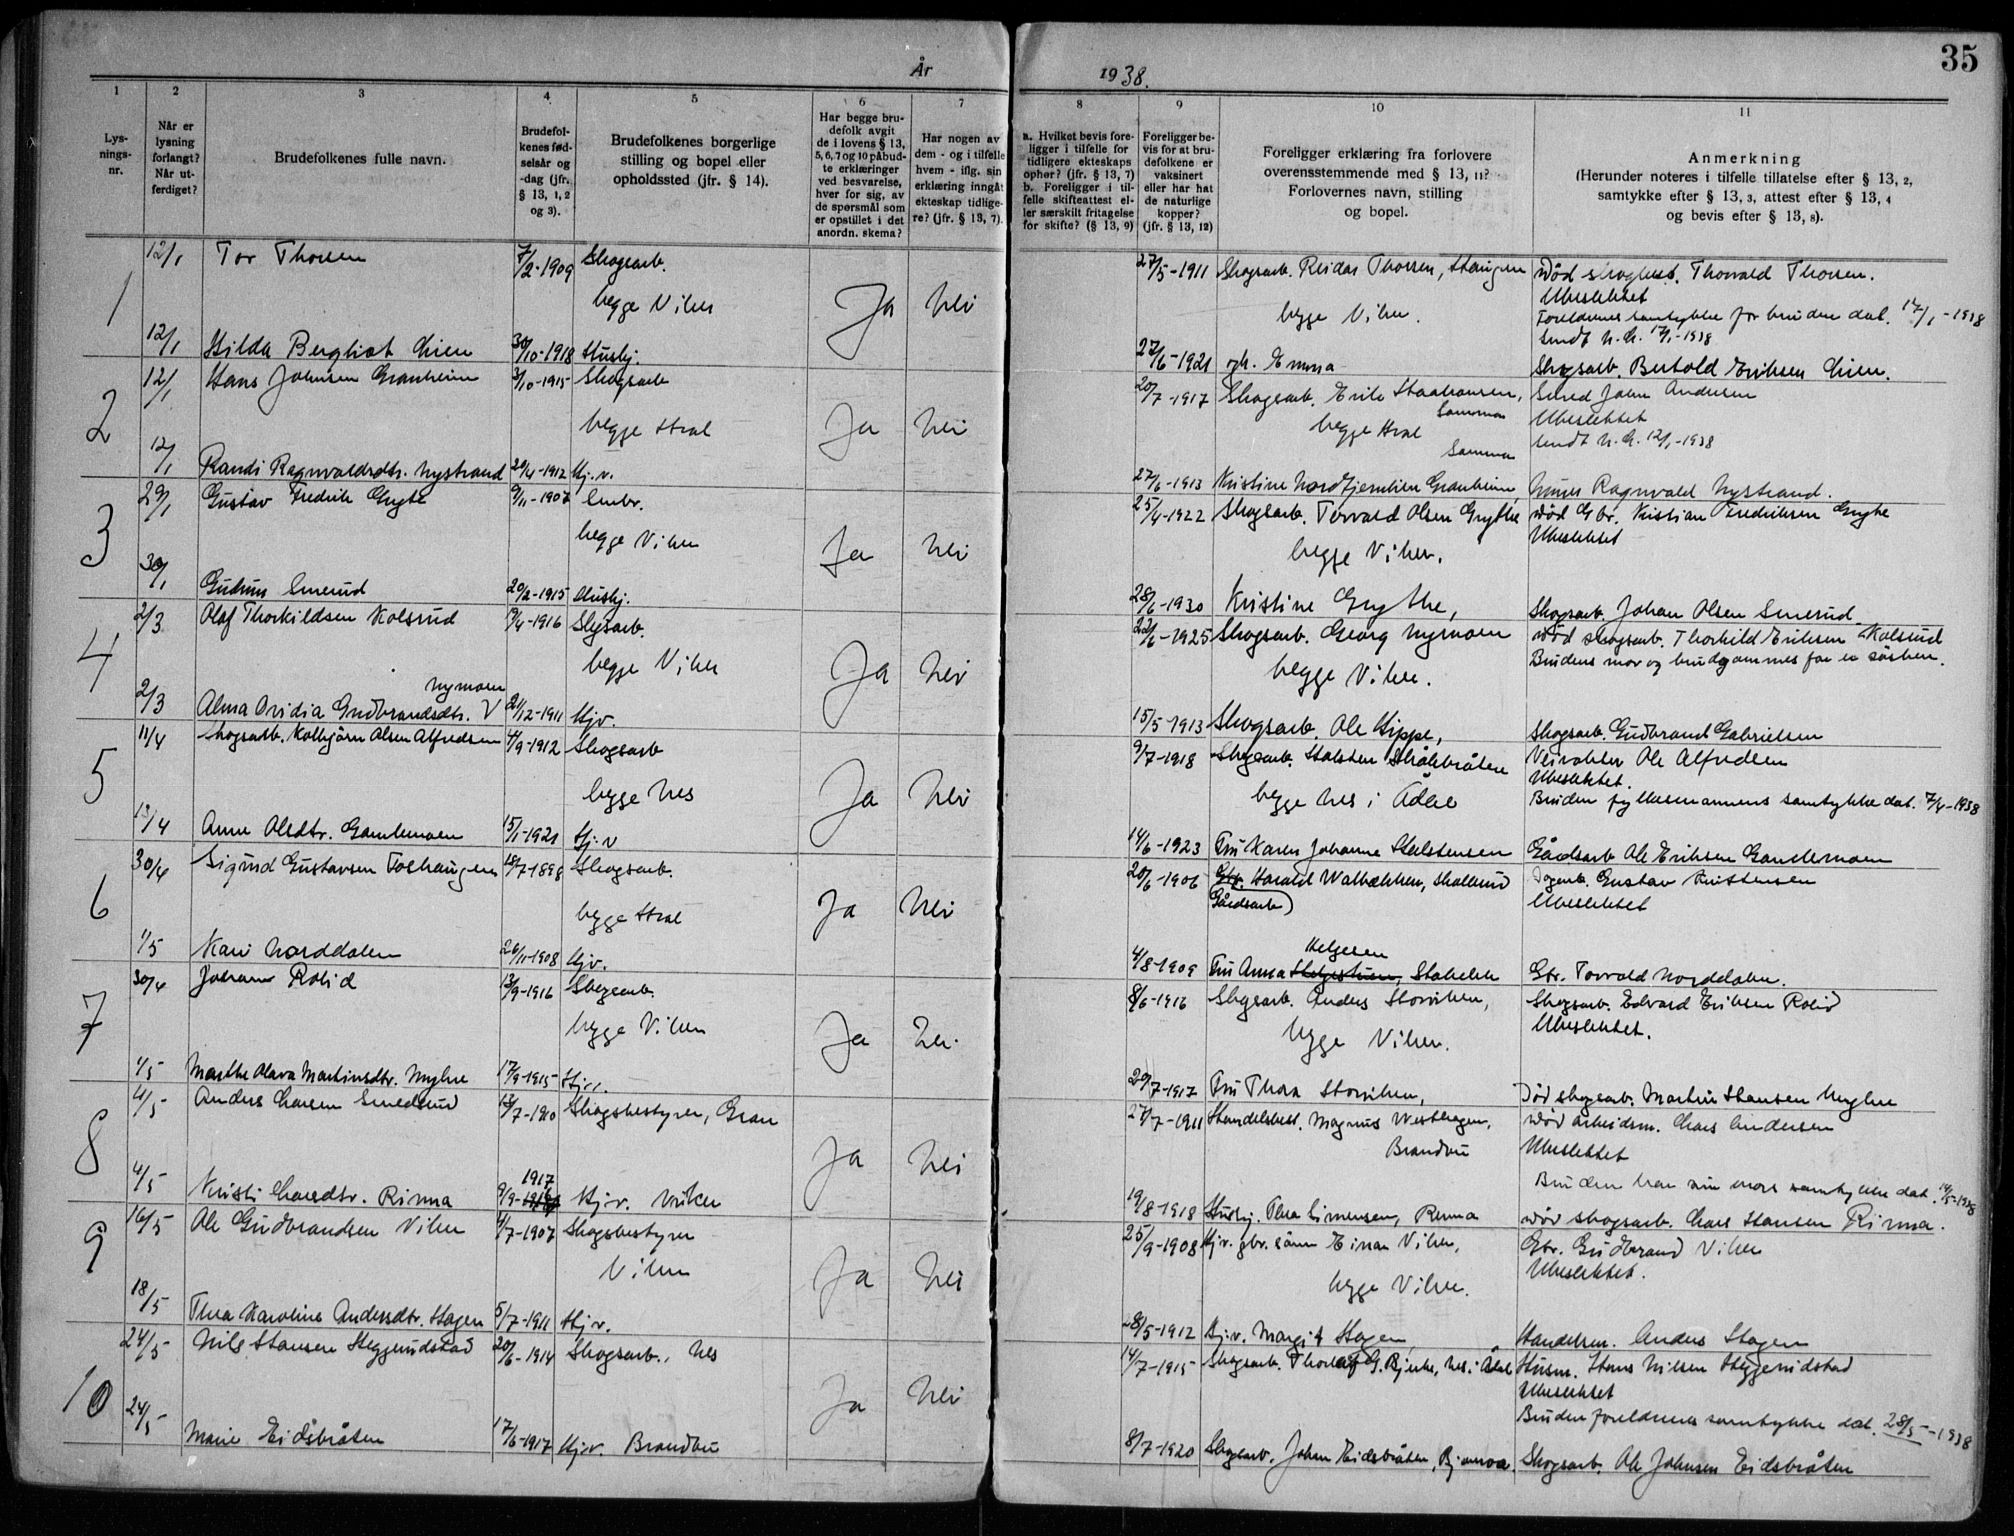 35
År 1938.
1 2 3 4 5 6 7 8 9 10 11
Lys-
nings-
nr.
Når er
lysning
forlangt?
Når ut-
ferdiget?
Brudefolkenes fulle navn.
Brudefol-
kenes fød-
selsår og
-dag (jfr.
§ 13, 1, 2
og 3).
Brudefolkenes borgerlige
stilling og bopel eller
opholdssted (jfr. § 14).
Har begge bru-
defolk avgit
de i lovens § 13,
5, 6, 7 og 10 påbud-
te erklæringer
ved besvarelse,
hver for sig, av
de spørsmål som
er opstillet i det
anordn. skema?
Har nogen av
dem - og i tilfelle
hvem - iflg. sin
erklæring inngåt
ekteskap tidlige-
re? (jfr. § 13, 7).
a. Hvilket bevis fore-
ligger i tilfelle for
tidligere ekteskaps
ophør? (jfr. § 13, 7)
b. Foreligger i til-
felle skifteattest el-
ler særskilt fritagelse
for skifte? (§ 13, 9)
Foreligger be-
vis for at bru-
defolkene er
vaksinert
eller har hat
de naturlige
kopper?
(jfr. § 13, 12)
Foreligger erklæring fra forlovere
overensstemmende med § 13, 11?
Forlovernes navn, stilling
og bopel.
Anmerkning
(Herunder noteres i tilfelle tillatelse efter § 13, 2,
samtykke efter § 13, 3, attest efter § 13, 4
og bevis efter § 13, 8).
1
12/1 Tor Thorsen 7/2-1909 Skogsarb. 27/5-1911 Skogsarb. Reidar Thorsen, Haugen Død skogbest. Thorvald Thorsen.
begge Viker Ja Nei begge Viker. Ubeslektet
Foreldrenes samtykke for bruden dat. 17/1-1938
sendt N.G. 17/1-1938
12/1 Hilda Bergliot Lien 30/10-1918 Hushj. 27/6-1921 og h. Emma Skogsarb. Bertold Eriksen Lien.
2
12/1 Hans Johnsen Granheim 3/10-1915 Skogsarb 20/7-1917 Skogsarb. Erik Smed John Andersen
begge Hval Ja Nei begge Hval Samme Ubeslektet
sendt N.G. 12/1-1938
Samme
12/1 Randi Ragnvaldsdtr. Nystrand 20/4-1912 Hj.v. 27/6-1913 Kristine Granheim, Ragnvald Nystrand.
3
29/1 Gustav Fredrik Grythe 9/11-1907 Småbr. 25/4-1922 Skogsarb. Torvald Olsen Grythe Død Gbr. Kristian Fredriksen Grythe
begge Viker Ja Nei begge Viker. Ubeslektet
30/1 Gudrun Smerud 20/2-1915 Hushj. 28/6-1930 Kristine Grythe, Skogsarb. Johan Olsen Smerud
4
2/3 Olaf Thorkildsen Kolsrud 19/4-1916 Skogsarb. 22/6-1925 Skogsarb. Georg Nymoen Død skogsarb. Thorkild Eriksen Kolsrud
begge Viker Ja Nei begge Viker. Brudens mor og brudgommens far er søsken.
Nymoen
2/3 Alma Ovidia Gudbrandsdtr. V 21/12-1911 Hjv. 15/5-1913 Skogsarb. Ole Hippe, Skogsarb. Gudbrand Gabrielsen
5
11/4 Skogsarb. Kolbjørn Olsen Alfredsen 4/9-1912 Skogsarb 9/7-1918 Skogsarb. Halsten Skålebråten Veivokter Ole Alfredsen
Ubeslektet.
begge Nes Ja Nei begge Nes i Ådal Bruden fylkesmannens samtykke dat. 7/4-1938
13/4 Anna Olsdtr. Gamlemoen 15/1-1921 Hj.v 14/6-1923 Fru Karen Johanne Halstensen Gårdsarb Ole Eriksen Gamlemoen
6
30/4 Sigurd Gustavsen Foshaugen 18/7-1898 Skogsarb. 20/6-1906 Gbr. Harald Walbækken, Skollerud Gustav Kristensen
Gårdsarb) Ubeslektet
begge Hval Ja Nei
Helgesen
1/5 Kari Norddalen 26/11-1908 Hjv. 4/8-1909 Fru Anna Stabekk Gbr. Torvald Norddalen.
7
30/4 Johan Rolid 13/9-1916 Skogsarb. 8/6-1916 Skogsarb. Anders Storviken, Skogsarb. Edvard Eriksen Rolid
begge Viker Ja Nei. begge Viker. Ubeslektet.
1/5 Marthe Olava Martinsdtr. Myhre 17/9-1915 Hjv. 20/7-1917 Fru Thea Storviken, Død skogsarb. Martin Hansen Myhre
8
4/5 Anders Larsen Smedsrud 13/7-1910 Skogsbestyrer, Gran 27/7-1911 Handelsbest. Magnus Westhagen, Død arbeidsm. Lars Andersen
Ja Nei Brandbu Ubeslektet
Bruden har sin mors samtykke dat. 14/5-1938
1917
4/5 Kristi Larsdtr. Rinna 9/9-1918 Hjv. Viker 19/8-1918 Hushj. Thea Simensen, Renna Død skogsarb. Lars Hansen Rinna.
9
16/5 Ole Gudbrandsen Viker 4/7-1907 Skogsbestyrer 25/9-1908 Hjv. gbr. sønn Einar Viker, Gbr. Gudbrand Viker
Viker Ja Nei begge Viker. Ubeslektet.
18/5 Thea Karoline Andersdtr. Hagen 5/7-1911 Hjv. 28/5-1912 Hj.v. Margit Hagen Handelsm. Anders Hagen
10
24/5 Nils Hansen Heggerudstad 20/6-1914 Skogsarb., Nes 14/7-1915 Skogsarb. Thorleif G. Bjerke, Nes i Ådal Husm. Hans Nilsen Heggerudstad
Ja Nei Ubeslektet
Bruden foreldrenes samtykke dat. 28/5-1938
24/5 Marie Eidsbråten 17/6-1917 Hjv. Brandbu 8/7-1920 Skogsarb. Johan Eidsbråten, Bjoneroa. Skogsarb. Ole Johnsen Eidsbråten